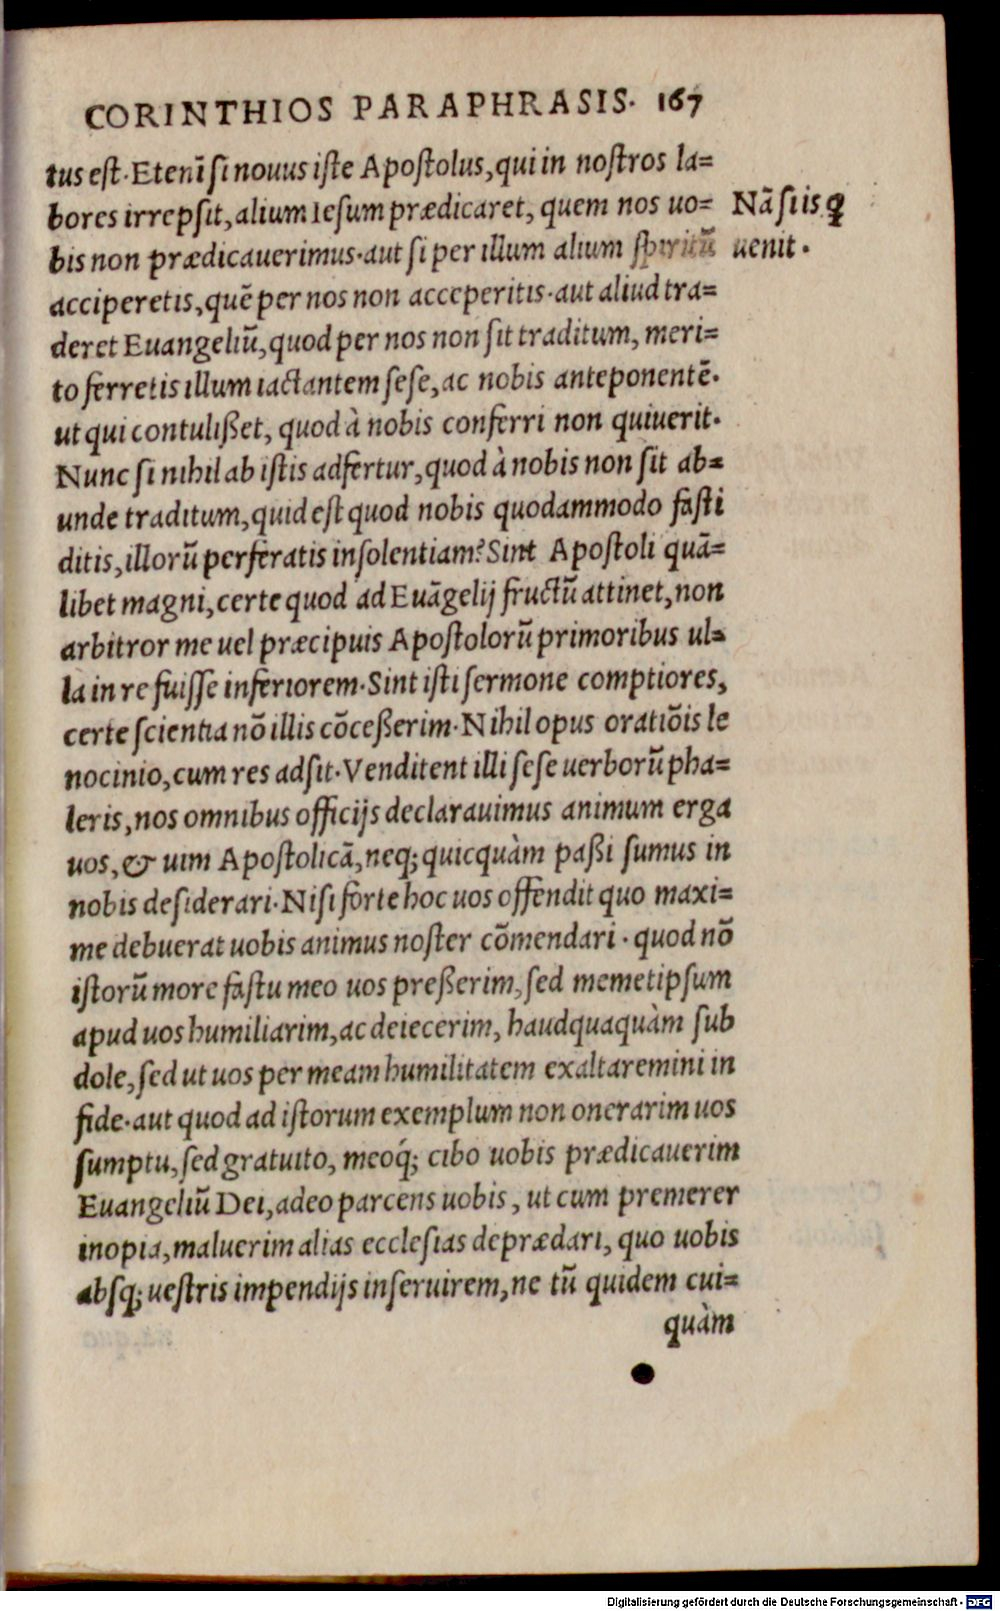 CORINTHIOS PARAPHRASIS. 167
tus est. Etenī si nouus iste Apostolus, qui in nostros la=
bores irrepsit, alium Iesum prædicaret, quem nos uo=
Nā si is q̄
bis non prædicauerimus. aut si per illum alium spiritū
uenit.
acciperetis, quē per nos non acceperitis. aut aliud tra=
deret Euangeliū, quod per nos non sit traditum, meri=
to ferretis illum iactantem sese, ac nobis anteponentē.
ut qui contulißet, quod à nobis conferri non quiuerit.
Nunc si nihil ab istis adfertur, quod à nobis non sit ab=
unde traditum, quid est quod nobis quodammodo fasti
ditis, illorū perferatis insolentiam? Sint Apostoli quā=
libet magni, certe quod ad Euāgelij fructū attinet, non
arbitror me uel præcipuis Apostolorū primoribus ul=
la in re fuisse inferiorem. Sint isti sermone comptiores,
certe scientia nō illis cōceßerim. Nihil opus oratiōis le
nocinio, cum res adsit. Venditent illi sese uerborū pha=
leris, nos omnibus officijs declarauimus animum erga
uos, & uim Apostolicā, neq; quicquàm paßi sumus in
nobis desiderari. Nisi forte hoc uos offendit quo maxi=
me debuerat uobis animus noster cōmendari. quod nō
istorū more fastu meo uos preßerim, sed memetipsum
apud uos humiliarim, ac deiecerim, haudquaquàm sub
dole, sed ut uos per meam humilitatem exaltaremini in
fide. aut quod ad istorum exemplum non onerarim uos
sumptu, sed gratuito, meoq́; cibo uobis prædicauerim
Euangeliū Dei, adeo parcens uobis, ut cum premerer
inopia, maluerim alias ecclesias deprædari, quo uobis
absq; uestris impendijs inseruirem, ne tū quidem cui=
quàm
Digitalisierung gefördert durch die Deutsche Forschungsgemeinschaft - DFG